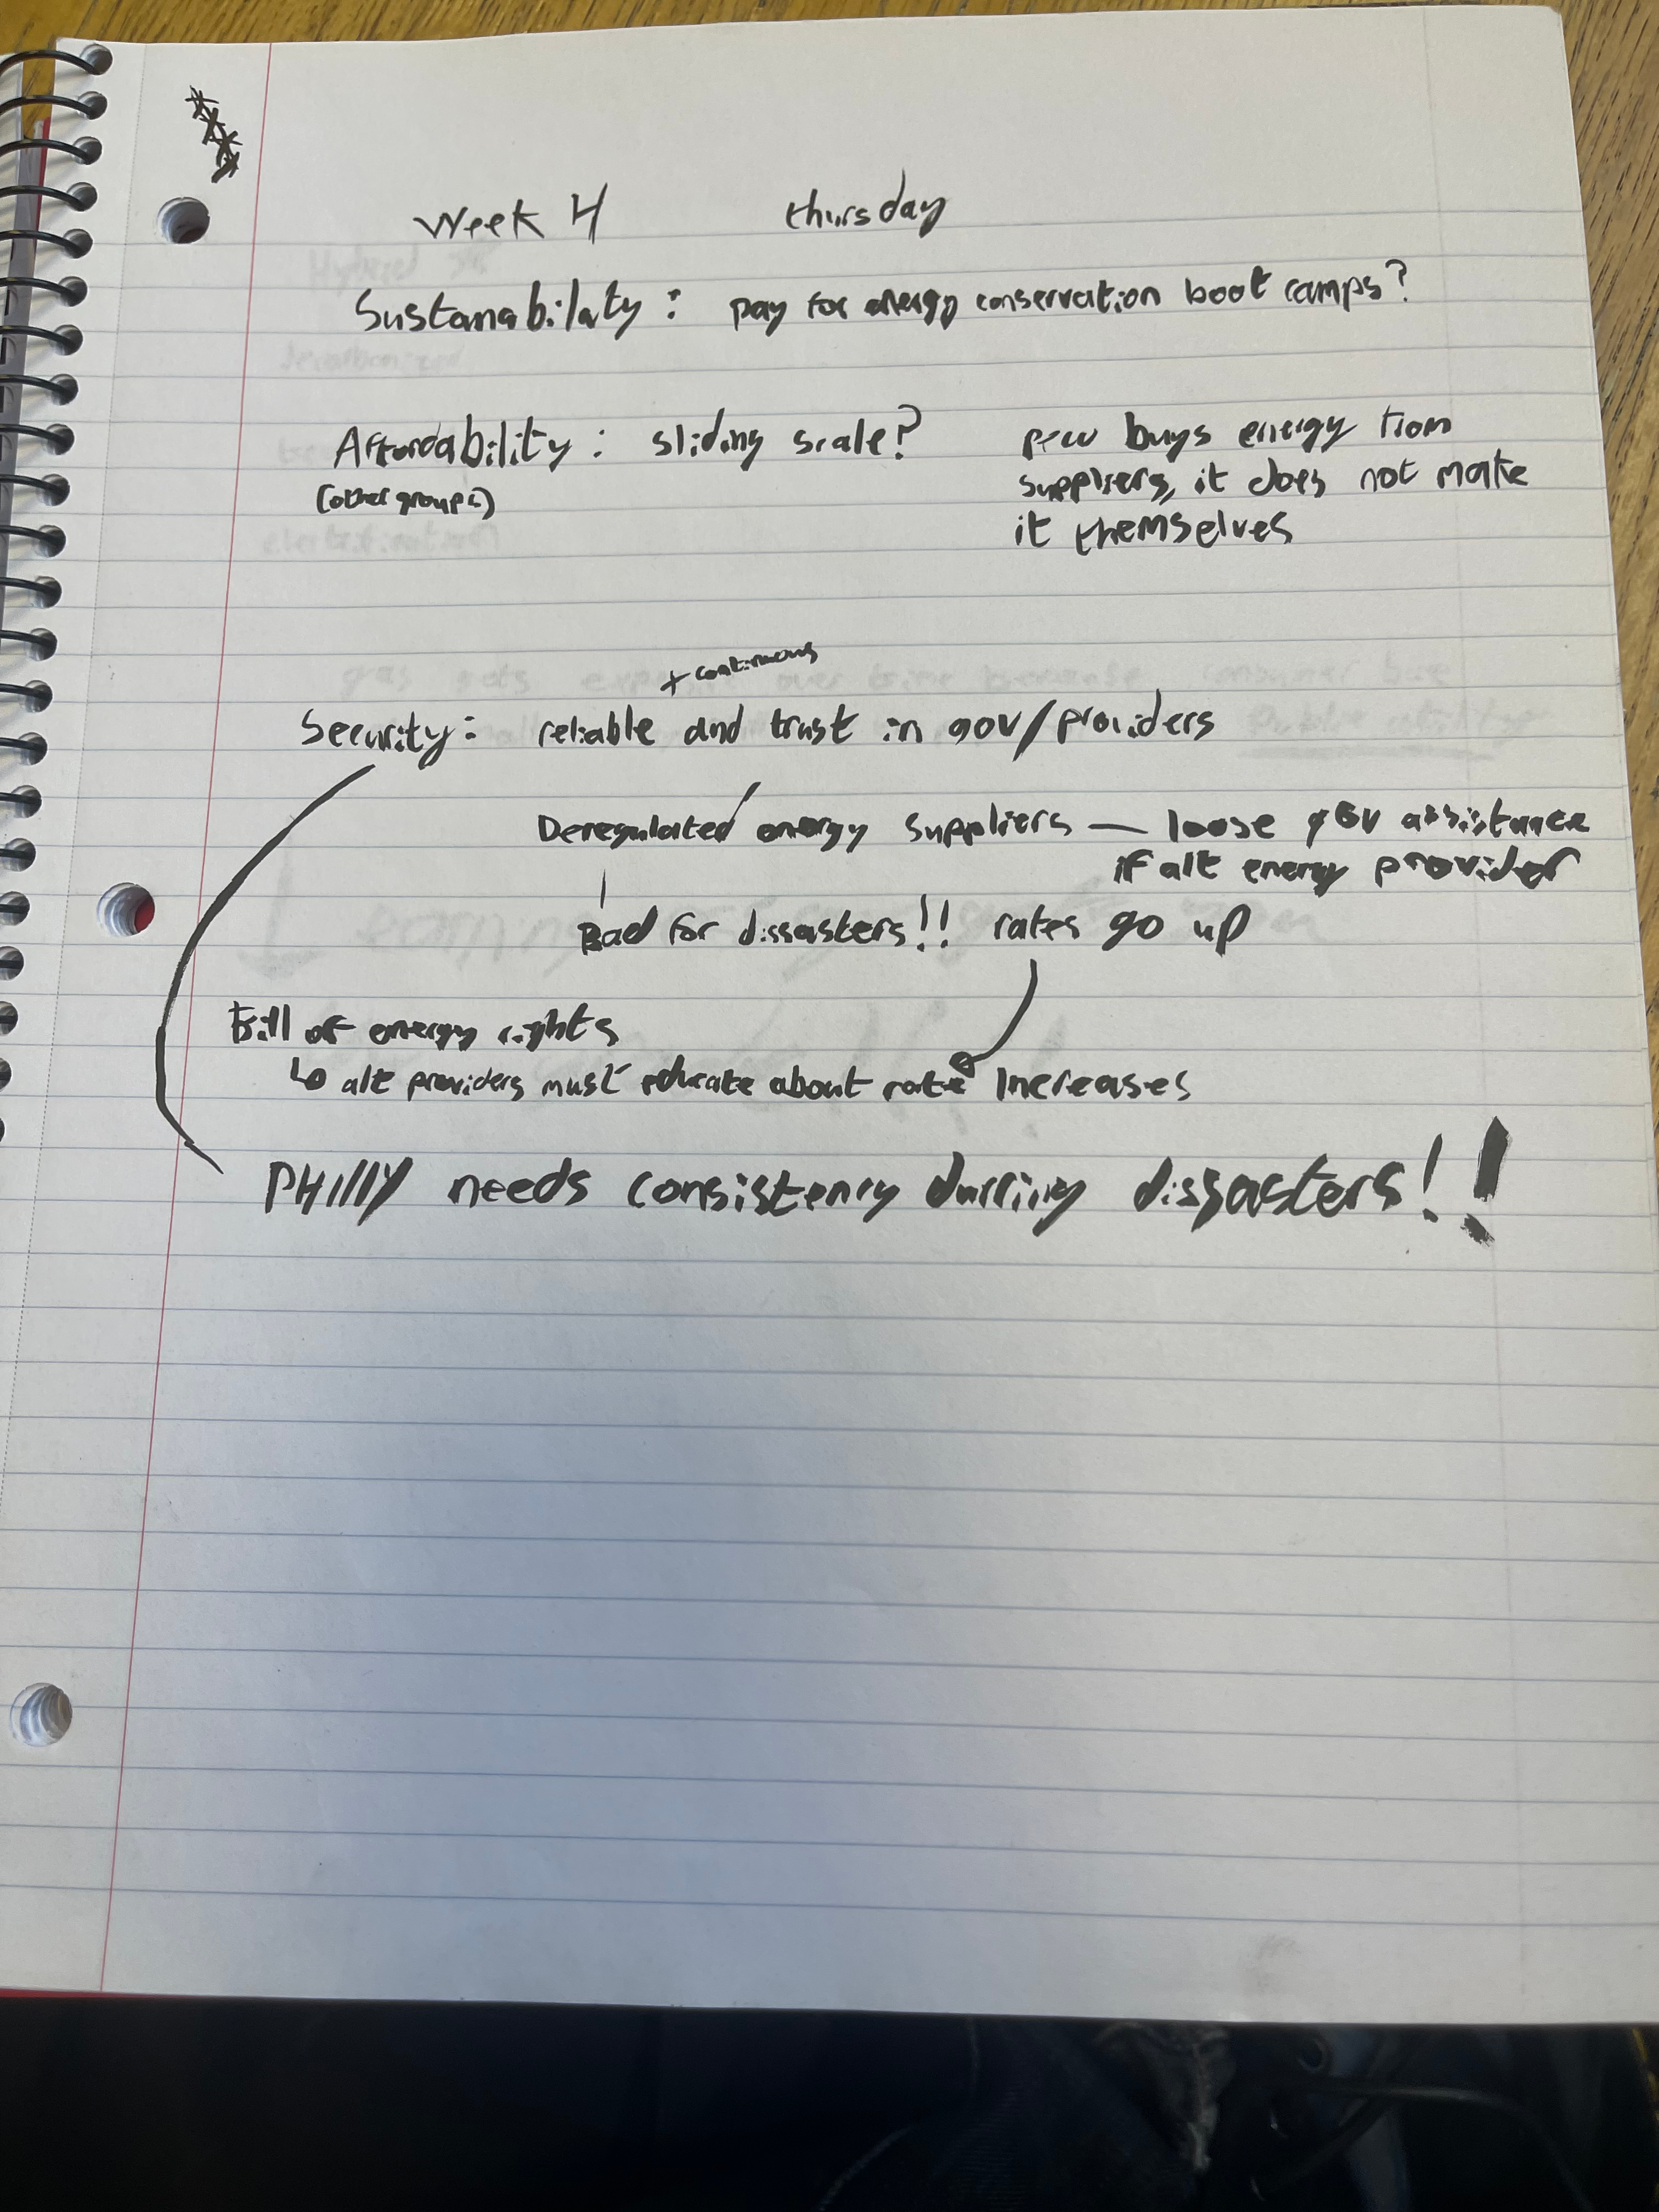 Week 4 thursday
Sustanabilaty : pay for energy conservation boot camps?
Affordability : sliding scale?
(other groups)
buys energy from
suppliers, it does not make
it themselves
+ continuous
Security: reliable and trust in gov/providers
Deregulated energy suppliers — loose gov assistance
if alt energy provider
Bad for dissasters!! rates go up
Bill of energy rights
↳ alt providers must educate about rate increases
PHIllY needs consistency durring dissasters!!